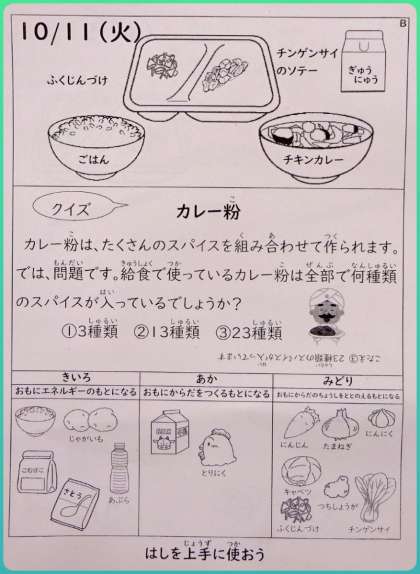 B
10/11(火)
ふくじんづけ
チンゲンサイ
のソテー
ぎゅう
にゅう
ごはん
チキンカレー
クイズ
カレー粉
カレー粉は、たくさんのスパイスを組み合わせて作られます。
では、問題です。給食で使っているカレー粉は全部で何種類
のスパイスが入っているでしょうか？
①3種類 ②13種類 ③23種類
こたえ ③ 23種類のスパイスが入っています
きいろ
おもにエネルギーのもとになる
じゃがいも
こむぎこ
さとう
あぶら
あか
おもにからだをつくるもとになる
とりにく
みどり
おもにからだのちょうしをととのえるもとになる
にんじん
たまねぎ
にんにく
キャベツ
つちしょうが
ふくじんづけ
チンゲンサイ
はしを上手に使おう